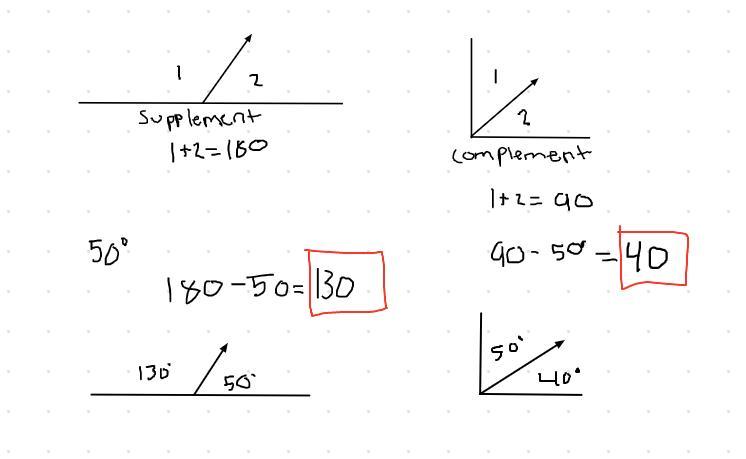 1
2
Supplement
1+2=180
1
2
Complement
1+2=90
50°
180-50=130
90-50°=40
130°
50°
50°
40°